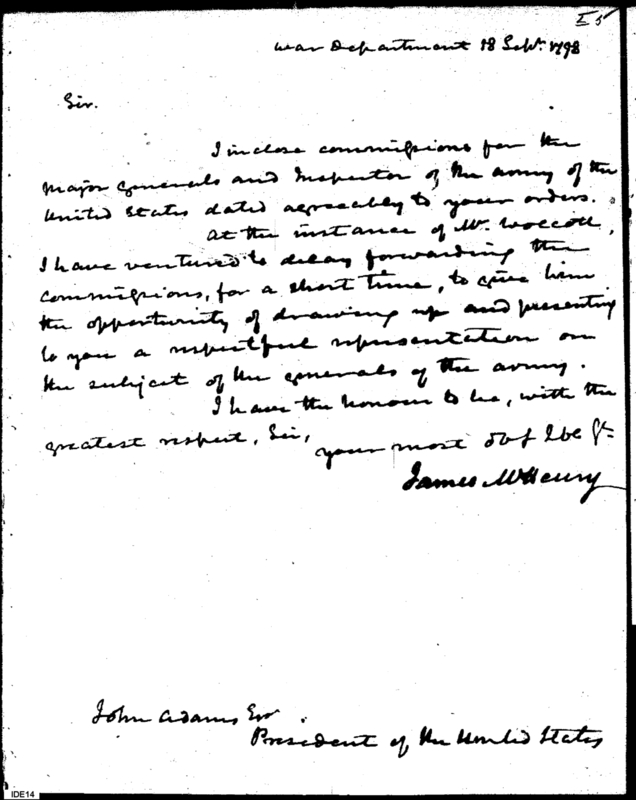 War Department 18 Sepr. 1798
Sir.
I inclose commissions for the
Major generals and Inspector of the army of the
United States dated agreeably to your orders.
At the instance of Mr. Wolcott,
I have ventured to delay forwarding the
commissions, for a short time, to give him
the opportunity of drawing up and presenting
to you a respectful representation on
the subject of the generals of the army.
I have the honour to be, with the
greatest respect, Sir,
your most obt
James McHenry
John Adams Esqr.
President of the United States
IDE14